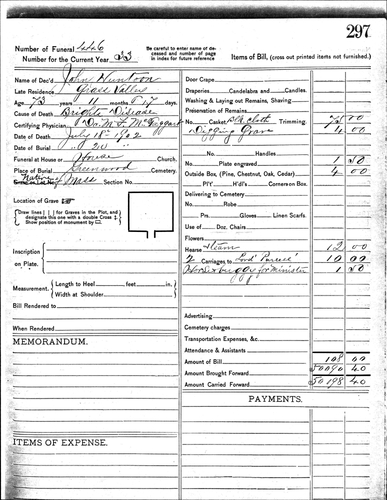 297
Number of Funeral 446
Number for the Current Year 33
Be carefull to enter name of deceased and number of page in index for future reference
Items of Bill, (cross out printed items not furnished.)
Name of Dec'd John Huntoon
Late Residence Grass Valley
Age 73 years 11 months & 17 days.
Cause of Death Bright Disease
Certifying Physician Dr. W. F. McTaggart
Date of Death July 18th 1902
Date of Burial " 20 "
Funeral at House or House Church.
Place of Burial Greenwood Cemetery.
Native of Mass Section No.
Location of Grave
Draw lines for Graves in the Plot, and designate this one with a double Cross
Show position of monument by
Inscription on Plate.
Measurement. Length to Heel feet in.
Width at Shoulder
Bill Rendered to
When Rendered
MEMORANDUM.
ITEMS OF EXPENSE.
Door Crape
Draperies, Candelabra and Candles.
Washing & Laying out Remains, Shaving
Preservation of Remains
No. Casket Blk Cloth Trimming. 75 00
Digging Grave 4 00
No. No. Handles
No. Plate engraved 1 50
Outside Box, (Pine, Chestnut, Oak, Cedar) 4 00
P'l'Y H'd'l's Corners on Box.
Delivering to Cemetery
No. Robe
Prs. Gloves Linen Scarfs.
Use of Doz. Chairs
Flowers
Hearse & team 12 00
2 Carriages to 10 00
Horse & buggy for Minister 1 50
Advertising
Cemetery charges
Transportation Expenses, &c.
Attendance & Assistants
Amount of Bill 108 00
Amount Brought Forward 50090 40
Amount Carried Forward 50198 40
PAYMENTS.